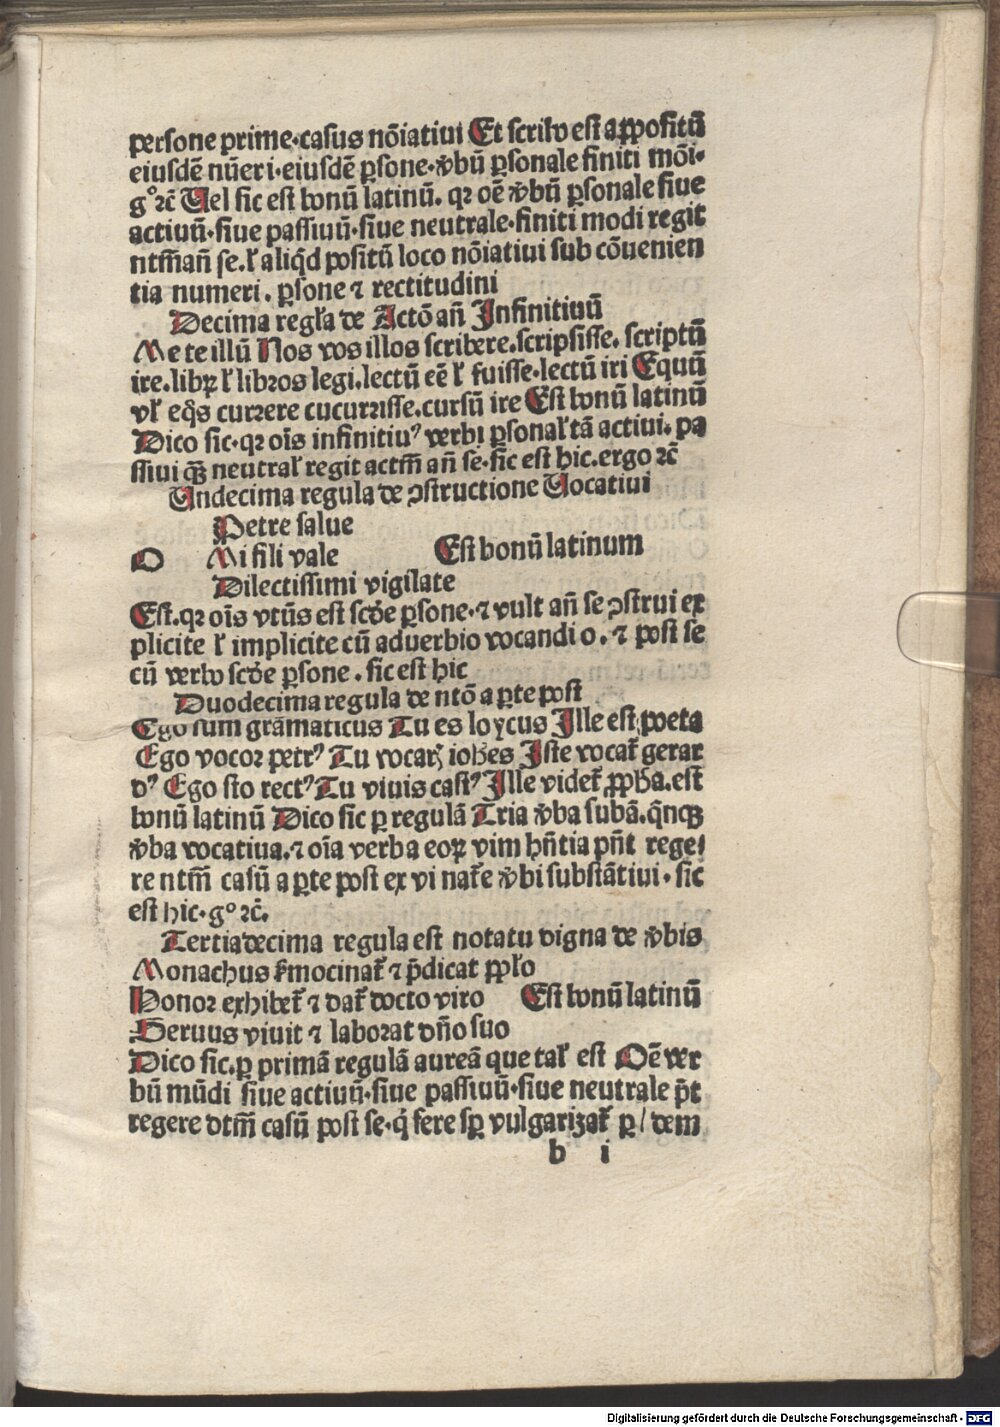 persone prime·casus nōiatiui Et scribo est appositū
eiusdē nūeri·eiusdē ꝑsone·v̓bū ꝑsonale finiti mōi·
g°ꝛc̄ Uel sic est bonū latinū. qꝛ oē v̓bū ꝑsonale siue
actiuū·siue passiuū·siue neutrale·finiti modi regit
ntm̄ an̄ se.ł aliqd̓ positū loco nōiatiui sub cōuenien
tia numeri. ꝑsone ⁊ rectitudini
Decima regl̓a de Actō an̄ Infinitiuū
Me te illū Nos vos illos scribere.scripsisse. scriptū
ire.libꝝ ł libꝛos legi.lectū eē ł fuisse·lectū iri Equū
vł eq̊s curꝛere cucurꝛisse.cursū ire Est bonū latinū
Dico sic·qꝛ oīs infinitiuꝰ verbi ꝑsonał tā actiui. pa
ssiui qꝫ neutrał regit actm̄ an̄ se·sic est hic.ergo ꝛc̄
Undecima regula de ꝯstructione Uocatiui
Petre salue
O Mi fili vale Est bonū latinum
Dilectissimi vigilate
Est.qꝛ oīs vtūs est scd̓e ꝑsone·⁊ vult an̄ se ꝯstrui ex
plicite ł implicite cū aduerbio vocandi o. ⁊ post se
cū verbo scd̓e ꝑsone. sic est hic
Duodecima regula de ntō a ꝑte post
Ego sum grāmaticus Tu es loycus Ille est poeta
Ego vocoꝛ petrꝰ Tu vocarꝭ ioh̄es Iste vocat̄ gerar
dꝰ Ego sto rectꝰ Tu viuis castꝰ Ille videt̄ ꝓph̄a.est
bonū latinū Dico sic ꝑ regulā Tria v̓ba subā.qn̄qꝫ
v̓ba vocatiua.⁊ oīa verba eoꝝ vim hn̄tia pn̄t rege/
re ntm̄ casū a ꝑte post ex vi nat̄e v̓bi substātiui· sic
est hic·g° ꝛc̄.
Tertiadecima regula est notatu digna de v̓bis
Monachus s̓mocinat̄ ⁊ p̄dicat ppl̓o
Honoꝛ exhibet̄ ⁊ dat̄ docto viro Est bonū latinū
Seruus viuit ⁊ laborat dn̄o suo
Dico sic.ꝑ primā regulā aureā que tał est Oē ver
bū mūdi siue actiuū·siue passiuū·siue neutrale p̄t
regere dtm̄ casū post se·q̇ fere sꝑ vulgarizat̄ ꝑ / dem
b i
Digitalisierung gefördert durch die Deutsche Forschungsgemeinschaft - DFG